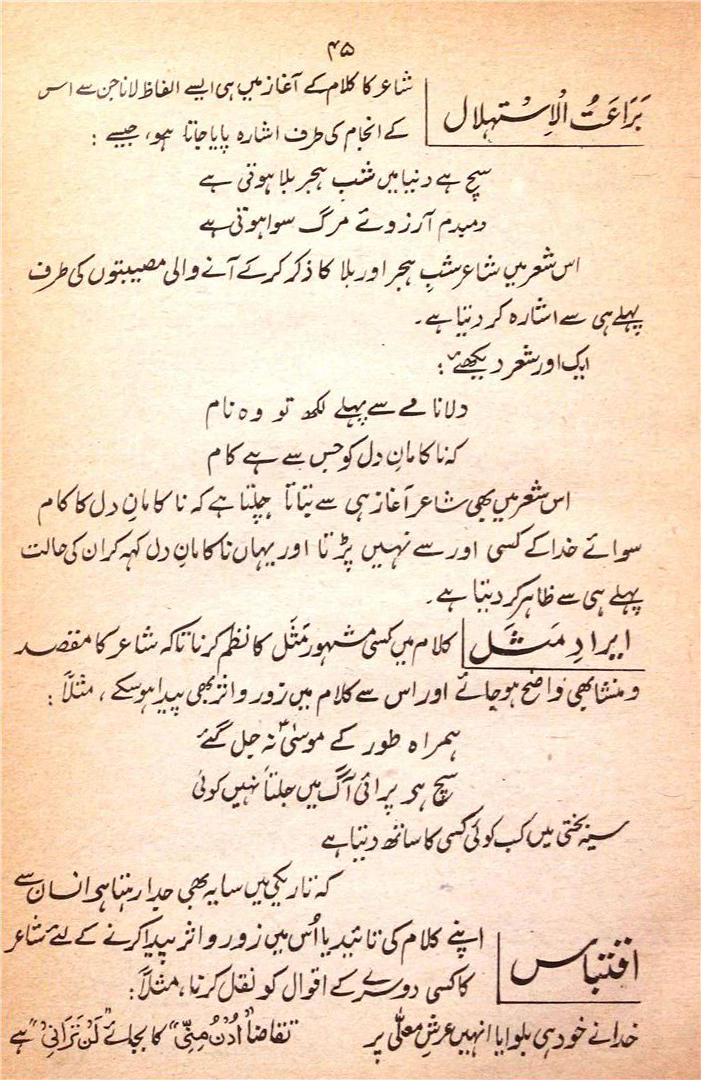 ۴۵
بَرَاعَتُ الْاِسْتِہلال
شاعر کا کلام کے آغاز میں ہی ایسے الفاظ لانا جن سے اس
کے انجام کی طرف اشارہ پایا جاتا ہو، جیسے :
سچ ہے دنیا میں شبِ ہجر بلا ہوتی ہے
دمبدم آرزوئے مرگ سوا ہوتی ہے
اس شعر میں شاعر شبِ ہجر اور بلا کا ذکر کر کے آنے والی مصیبتوں کی طرف
پہلے ہی سے اشارہ کر دیتا ہے۔
ایک اور شعر دیکھئے :
دلا نامے سے پہلے لکھ تو وہ نام
کہ ناکامانِ دل کو جس سے ہے کام
اس شعر میں بھی شاعر آغاز ہی سے بتاتا چلتا ہے کہ ناکامانِ دل کا کام
سوائے خدا کے کسی اور سے نہیں پڑتا اور یہاں ناکامانِ دل کہہ کر ان کی حالت
پہلے ہی سے ظاہر کر دیتا ہے۔
ایرادِ مَثَل
کلام میں کسی مشہور مَثَل کا نظم کرنا تاکہ شاعر کا مقصد
و منشا بھی واضح ہو جائے اور اس سے کلام میں زور و اثر بھی پیدا ہو سکے، مثلاً :
ہمراہ طور کے موسیٰؑ نہ جل گئے
سچ ہے پرائی آگ میں جلتا نہیں کوئی
سیہ بختی میں کب کوئی کسی کا ساتھ دیتا ہے
کہ تاریکی میں سایہ بھی جدا رہتا ہے انسان سے
اقتباس
اپنے کلام کی تائید یا اُس میں زور و اثر پیدا کرنے کے لئے شاعر
کا کسی دوسرے کے اقوال کو نقل کرنا، مثلاً :
خدا نے خود ہی بلوایا انہیں عرشِ معلّٰی پر
تقاضا "اُدْنُ مِنِّی" کا بجائے "لَنْ تَرَانِیْ" ہے